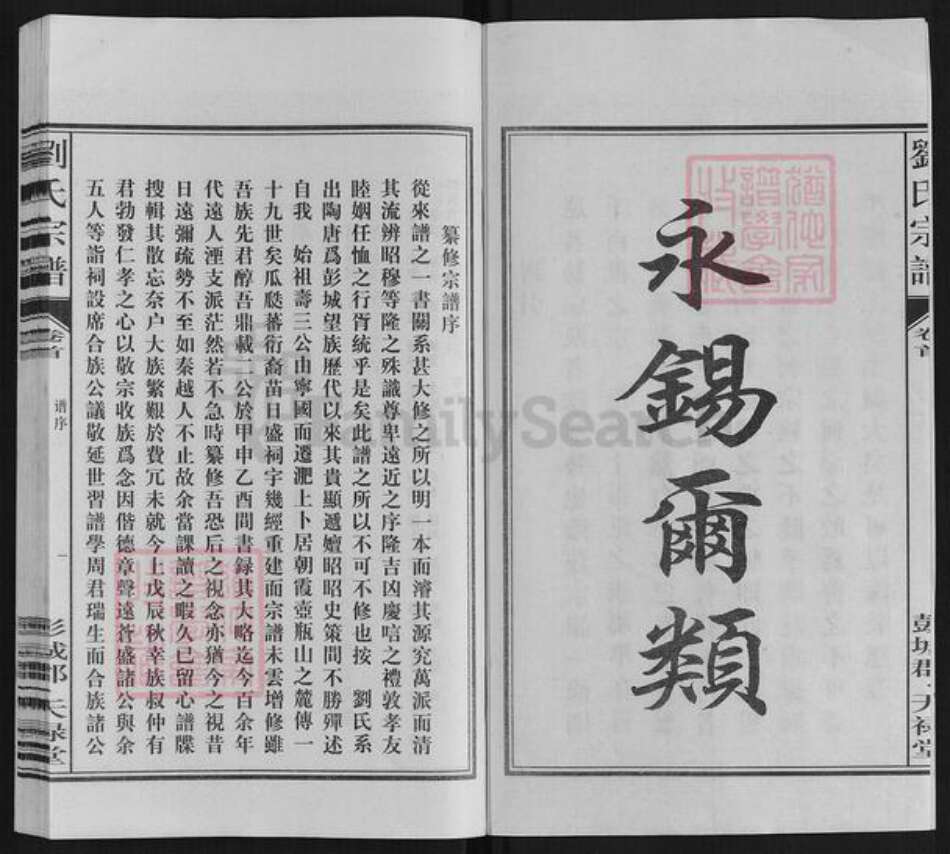 劉氏宗譜
卷首
彭城郡 天祿堂
永錫爾類
纂修宗譜序
從來譜之一書關系甚大修之所以明一本而濬其源究萬派而清
其流辨昭穆等隆之殊識尊卑遠近之序隆吉凶慶唁之禮敦孝友
睦姻任恤之行胥統乎是矣此譜之所以不可不修也按 劉氏系
出陶唐爲彭城望族歷代以來其貴顯遞嬗昭昭史策間不勝殫述
自我 始祖壽三公由寧國而遷淝上卜居朝霞壺瓶山之麓傳一
十九世矣瓜瓞蕃衍裔苗日盛祠宇幾經重建而宗譜未雲增修雖
吾族先君醇吾鼎載二公於甲申乙酉間書録其大略迄今百余年
代遠人湮支派茫然若不急時纂修吾恐后之視念亦猶今之視昔
日遠彌疏勢不至如秦越人不止故余當課讀之暇久已留心譜牒
搜輯其散忘奈户大族繁艱於費冗未就今上戊辰秋幸族叔仲有
君勃發仁孝之心以敬宗收族爲念因偕德章聲遠蒼盛諸公與余
五人等詣祠設席合族公議敬延世習譜學周君瑞生而合族諸公
劉氏宗譜
卷首
谱序
一
彭城郡 天祿堂
FamilySearch